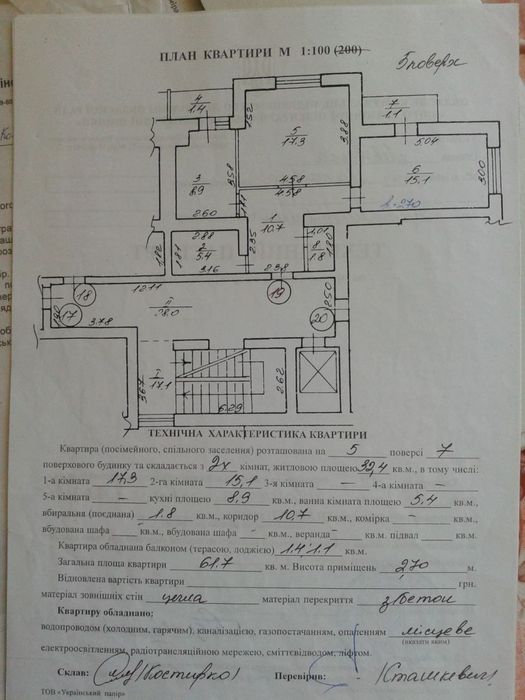 ПЛАН КВАРТИРИ М 1:100 (200)
5 поверх
4
1.4
1.52
5
17.3
3.88
7
1.1
5.04
6
15.1
3.00
h=2.70
3
8.9
3.58
4.58
4.58
2.60
1
10.7
2.88
2
5.4
1.82
1.81
3.16
2.35
2.38
1.01
8
1.8
1.80
12.11
18
19
2.50
II
28.0
17
3.78
20
I
17.1
3.67
2.62
6.29
ТЕХНІЧНА ХАРАКТЕРИСТИКА КВАРТИРИ
Квартира (посімейного, спільного заселення) розташована на 5 поверсі 7
поверхового будинку та складається з 2х кімнат, житловою площею 32,4 кв.м., в тому числі:
1-а кімната 17,3 2-га кімната 15,1 3-я кімната – 4-а кімната –
5-а кімната – кухні площею 8,9 кв.м., ванна кімната площею 5,4 кв.м.,
вбиральня (поєднана) 1.8 кв.м., коридор 10,7 кв.м., комірка – кв.м.,
вбудована шафа – кв.м., вбудована шафа – кв.м., веранда – кв.м. підвал кв.м.
Квартира обладнана балконом (терасою, лоджією) 1.4 1.1 кв.м.
Загальна площа квартири 61.7 кв. м. Висота приміщень 2,70 м.
Відновлена вартість квартири грн.
матеріал зовнішніх стін цегла матеріал перекриття з/бетон
Квартиру обладнано;
водопроводом (холодним, гарячим). каналізацією, газопостачанням, опаленням місцеве
(вказати яким)
електроосвітленням, радіотрансляційною мережею, сміттєвідводом, ліфтом.
Склав: (Костирко) Перевірив: (Сташкевич)
ТОВ «Український папір»